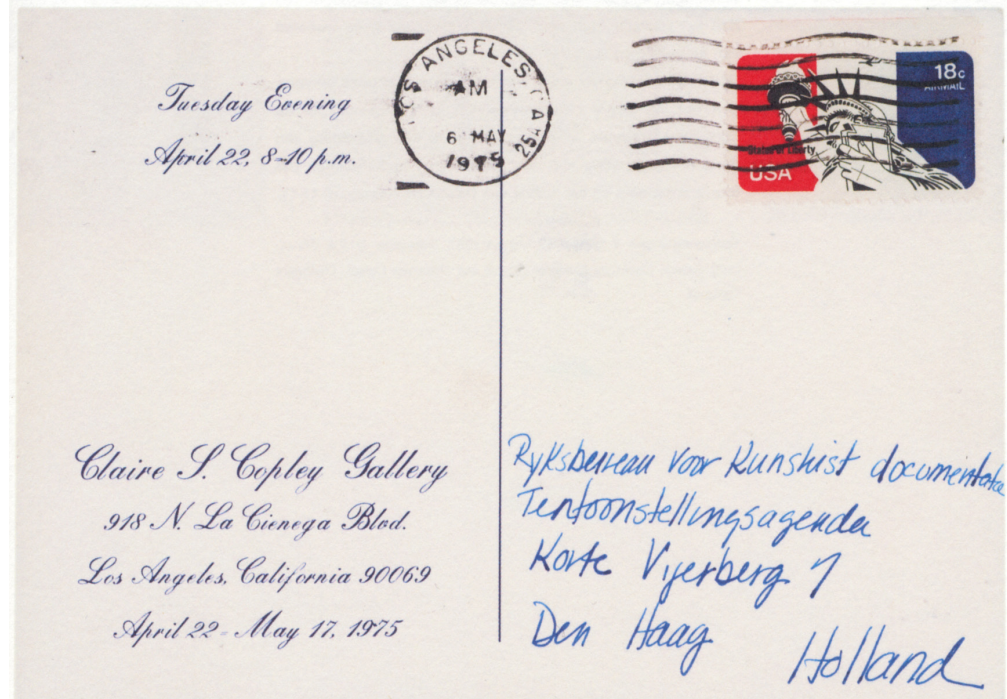 Tuesday Evening
April 22, 8-10 p.m.
LOS ANGELES, CA
AM
6 MAY
1975
18c
AIRMAIL
Statue of Liberty
USA
Claire S. Copley Gallery
918 N. La Cienega Blvd.
Los Angeles, California 90069
April 22 - May 17, 1975
Ryksbureau voor Kunsthist documentatie
Tentoonstellingsagenda
Korte Vijerberg 7
Den Haag
Holland